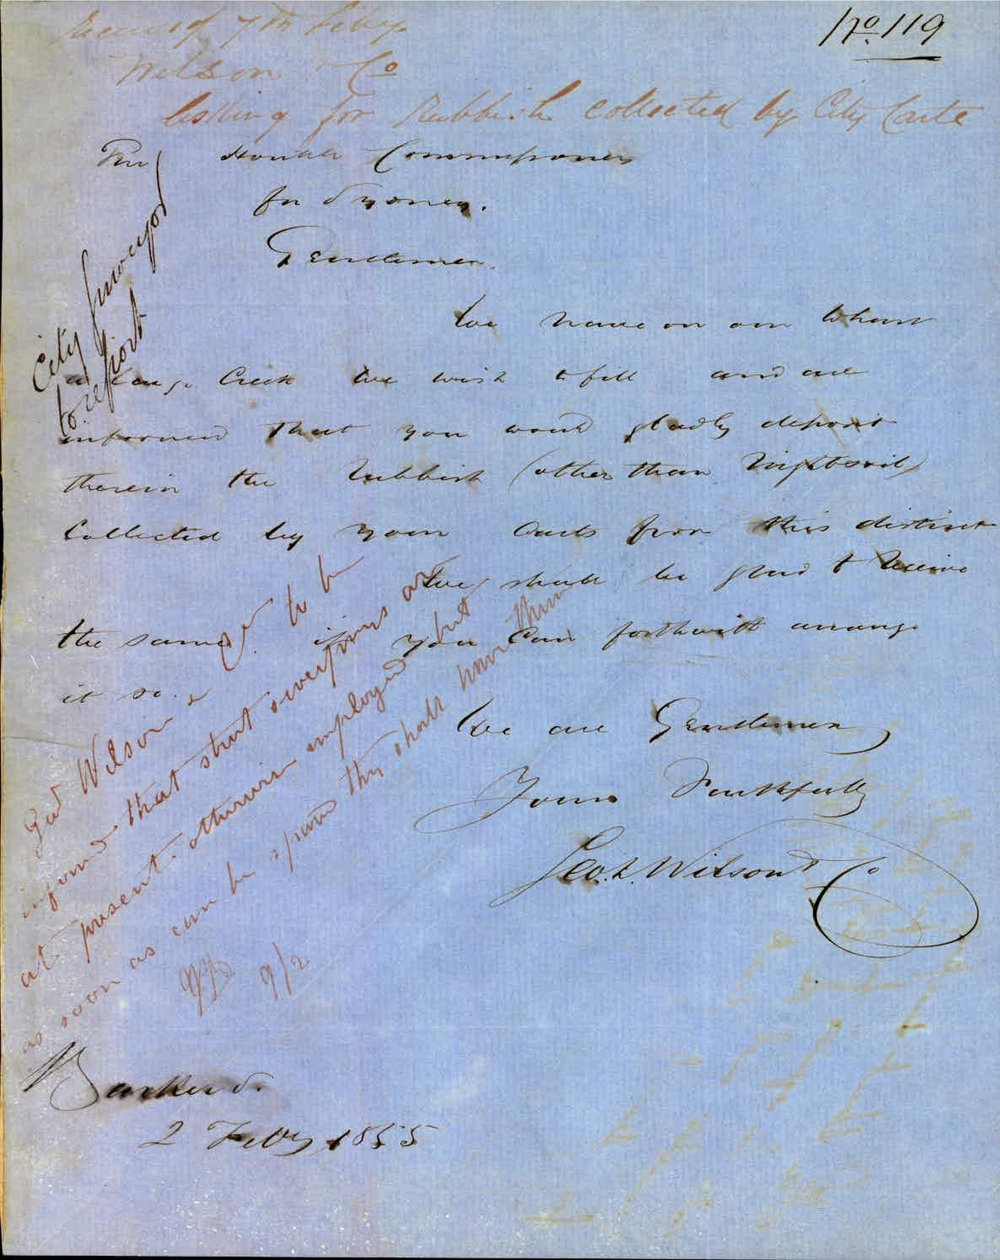 No. 119
Received 7th Feby
Wilson & Co
Asking for Rubbish collected by City Carts
The Honble Commissioners
for Sydney.
Gentlemen
We have on our Wharf
a Creek we wish to fill and are
informed that you would gladly deposit
therein the Rubbish (other than Nightsoil)
Collected by your Carts from this district
We shall be glad to receive
the same if you can forthwith arrange
it so.
We are Gentlemen
Yours Faithfully
Geo. Wilson & Co
Barker St.
2 Feby 1855
City Surveyor
to report
Geo Wilson & Co to be
informed that street sweepings are
at present otherwise employed but
as soon as can be spared they shall have them
9/2